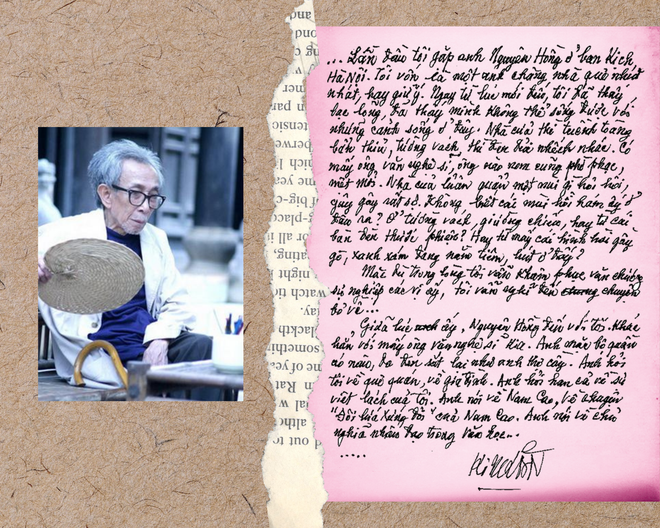 ... Lần đầu tôi gặp anh Nguyên Hồng ở ban kịch
Hà Nội. Tôi vốn là một anh chàng nhà quê nhút
nhát, hay giữ ý. Ngay từ lúc mới đến, tôi đã thấy
bạc lòng, đã thấy mình không thể sống được với
những cảnh sống ở đây. Nhà cửa thì tuềnh toàng
bẩn thỉu, tường vách thì đen đủi nhếch nhác. Có
mấy ông văn nghệ sĩ, ông nào xem cũng phờ phạc,
mệt mỏi. Nhà cửa luẩn quẩn một mùi gì hôi hôi,
gây gây rất sợ. Không biết các mùi hôi hám ấy ở
đâu ra? Ở tường vách, giường chiếu, hay từ cái
bàn đèn thuốc phiện? Hay từ mấy cái hình hài gầy
gò, xanh xám đang nằm ở đấy?
Mặc dù trong lòng tôi vẫn khâm phục văn chương
sự nghiệp các vị ấy, tôi vẫn nghĩ đến chuyện
bỏ về...
Giữa lúc ấy, Nguyên Hồng đến với tôi. Khác
hẳn với mấy ông văn nghệ sĩ kia. Anh mặc bộ quần
áo nâu, da đen sắt lại như anh thợ cày. Anh hỏi
tôi về quê quán, về gia đình. Anh hỏi han cả về sự
viết lách của tôi. Anh nói về Nam Cao, về chuyện
"Đôi lứa xứng đôi" của Nam Cao. Anh nói về chủ
nghĩa nhân đạo trong văn học...
.....
Kim Lân